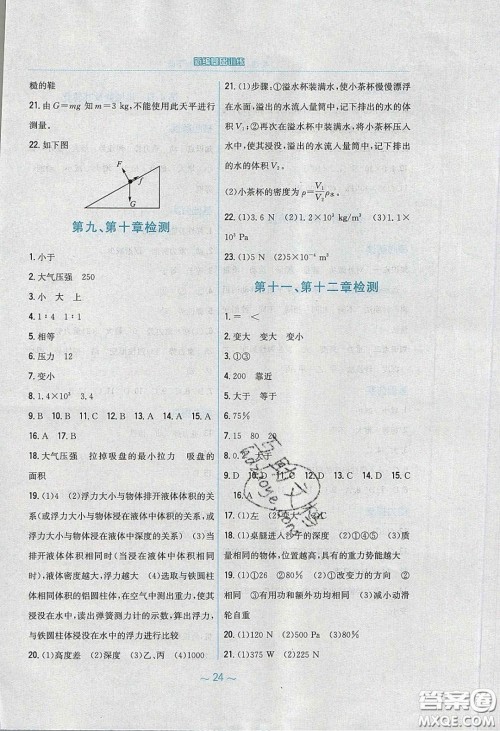 新编基础训练
糙的鞋
21. 由 G=mg 知 m=3 kg,不能使用此天平进行
测量。
22. 如下图
F
f
G
第九、第十章检测
1. 小于
2. 大气压强 250
3. 小 大 上
4. 1∶4 1∶1
5. 相等
6. 压力 12
7. 变小
8. 1.4×10³ 3.4
9. B 10. B 11. C 12. D 13. C 14. D 15. C
16. A 17. B
18. 大气压强 拉掉吸盘的最小拉力 吸盘的
面积
19. (1)(2)浮力大小与物体排开液体体积的关
系(或浮力大小与物体浸在液体中体积的关系,
或浮力大小与物体浸在液体中深度的关系) (3)当
排开液体体积相同时(当浸在液体中体积相同
时),液体密度越大,浮力越大 (4)选择与铁圆柱
体体积相同的铝圆柱体,在空气中测出重力,使
其浸没在水中,读出弹簧测力计的示数,算出浮力,
与铁圆柱体浸没在水中的浮力进行比较
20. (1)高度差 (2)深度 (3)乙、丙 (4)1000
21. (1)步骤:①溢水杯装满水,使小茶杯慢慢漂浮
在水面,溢出的水流入量筒中,记下排出的水的体
积 V₁;②再次在溢水杯中装满水,将小茶杯压入
水中,使其浸没,溢出的水流入量筒中,记下排出
的水的体积 V₂。
(2)小茶杯的密度为 ρ=V₁/V₂ρ水。
22. (1)3.6 N (2)1.2×10³ kg/m³ (3)1.1×
10³ Pa
23. (1)5 N (2)5×10⁻⁴ m³
第十一、第十二章检测
1. = <
2. 变大 变大 变小
3. ①③
4. 200 靠近
5. 大于 等于
6. 75%
7. 15 80 20
9. D 10. D 11. C 12. D 13. D 14. C 15. C
16. D
17. (1)左 (2)变大
18. (1)桌腿进入沙子的深度 (2)①③ (3)质
量相同的物体,位置越高,具有的重力势能越大
19. (1)①1 ②80% (2)①改变力的方向 ②
相同 ③有用功和额外功均相同 (3)减小动滑
轮自重
20. (1)120 N (2)500 Pa (3)80%
21. (1)375 W (2)225 N
～ 24 ～
答案圈
MXQE.COM